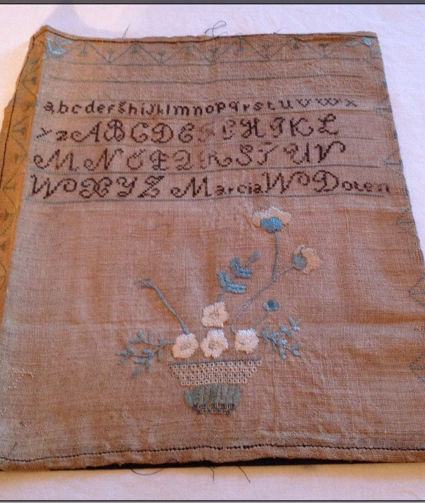 abcdefghijklmnopqrstuvwx
yzABCDEFGHIKL
MNOPQRSTUV
WXYZ Marcia W Doten